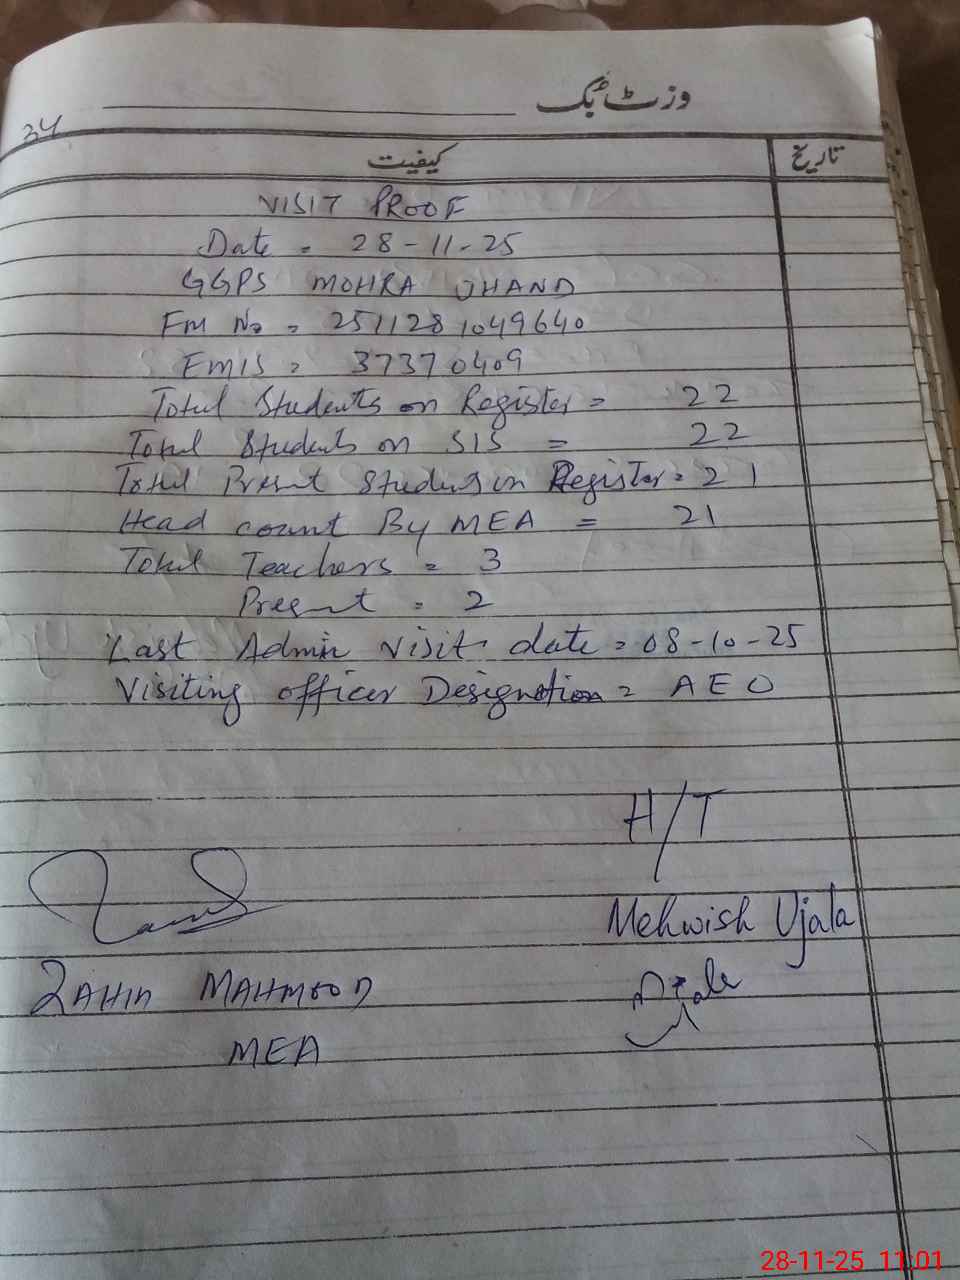 وزٹ بک
34
کیفیت تاریخ
VISIT PROOF
Date = 28-11-25
GGPS MOHRA JHAND
FM No = 2511281049640
EMIS = 37370409
Total Students on Register = 22
Total Students on SIS = 22
Total Present Students in Register = 21
Head count By MEA = 21
Total Teachers = 3
Present = 2
Last Admin Visit date = 08-10-25
Visiting officer Designation = AEO
H/T
Mehwish Ujala
MAHMOOD
MEA
28-11-25 11:01